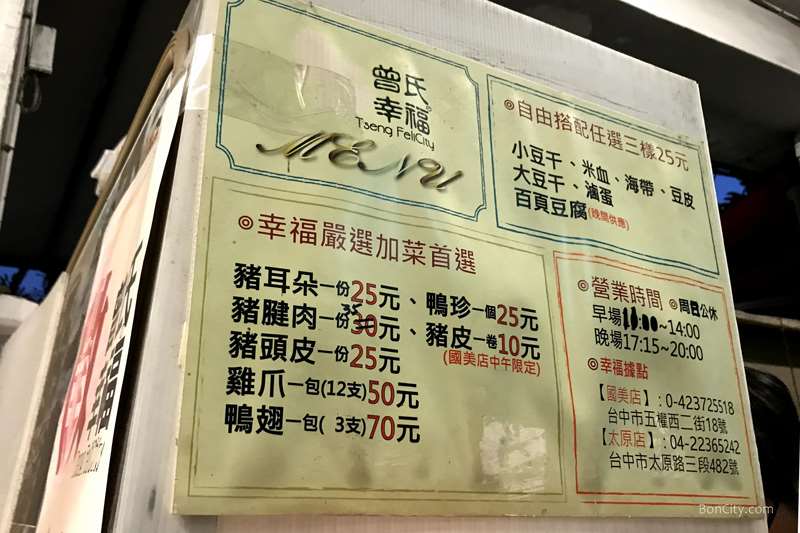 曾氏
幸福
Tseng FeliCity
MENU
◎自由搭配任選三樣25元
小豆干、米血、海帶、豆皮
大豆干、滷蛋
百頁豆腐(晚間供應)
◎幸福嚴選加菜首選
豬耳朵一份25元、鴨珍一個25元
豬腱肉一份35元、豬皮一卷10元
(國美店中午限定)
豬頭皮一份25元
雞爪一包(12支)50元
鴨翅一包( 3支)70元
◎營業時間 ◎周日公休
早場 ~14:00
晚場17:15~20:00
◎幸福據點
【國美店】:0-423725518
台中市五權西二街18號
【太原店】:04-22365242
台中市太原路三段482號
幸福
BonCity.com